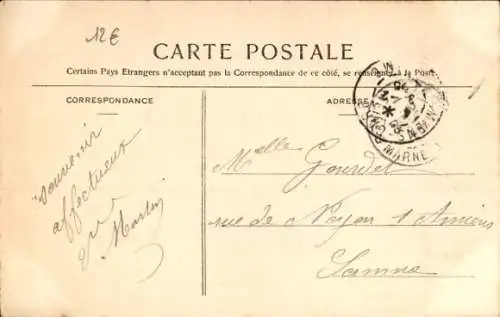 12€
CARTE POSTALE
Certains Pays Etrangers n'acceptent pas la Correspondance de ce côté, se renseigner à la Poste
CORRESPONDANCE
ADRESSE
MARNE
Souvenir
affectueux
Martin
Melle Gourdet
rue de Noyon 1 Amiens
Somme